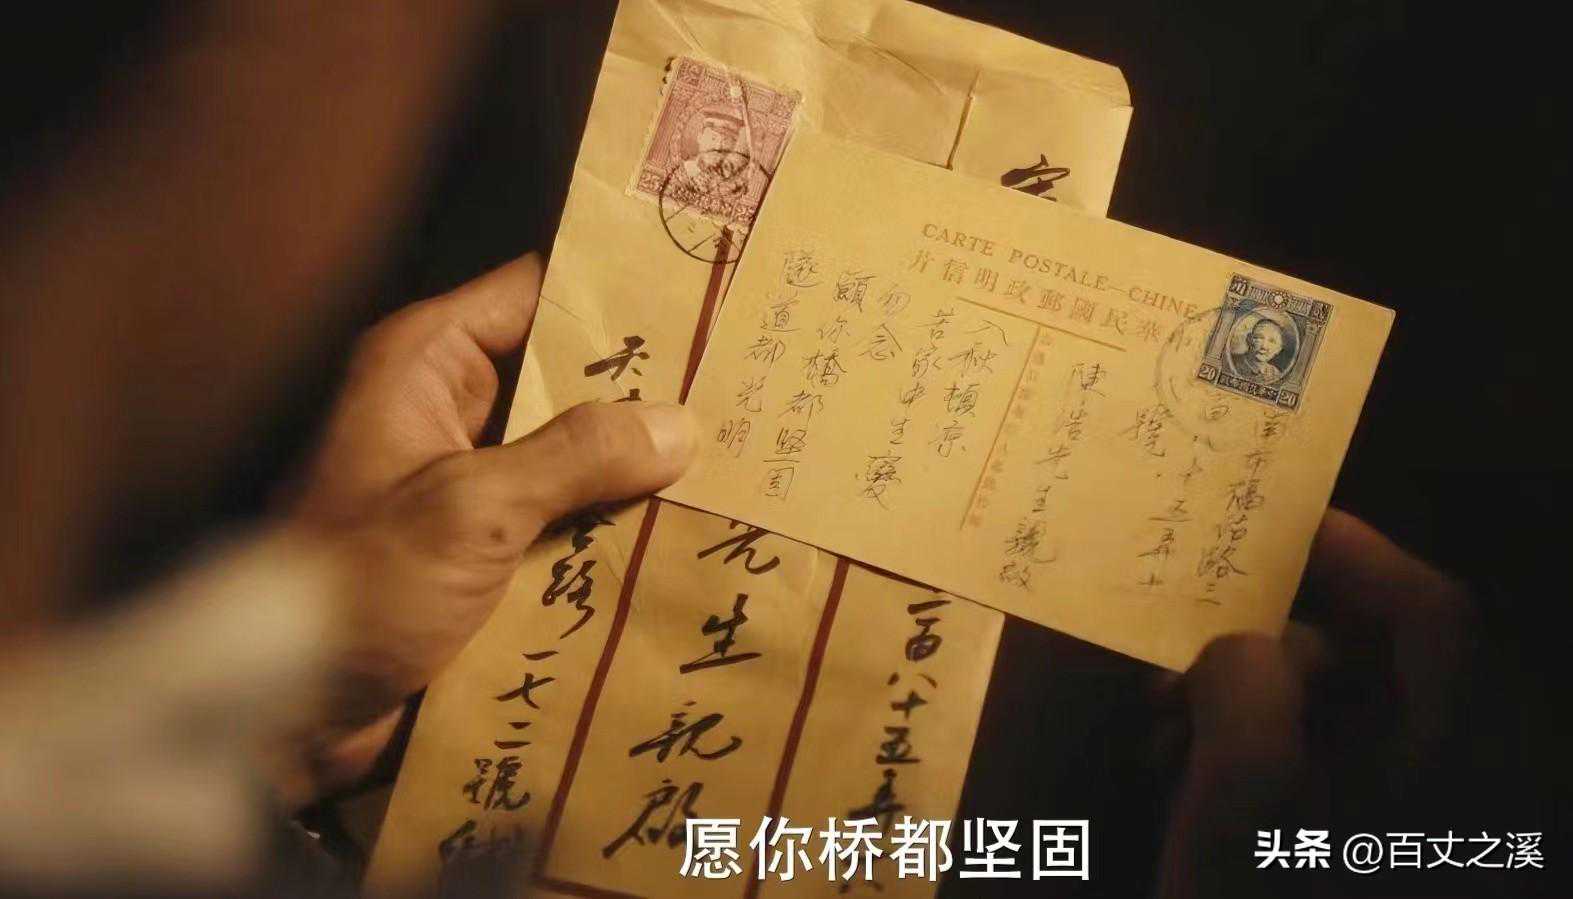 CARTE POSTALE—CHINE.
中華民國郵政明信片
20
20
百八十五弄十
陳浩先生親啟
入秋頓凉
苦家中生變
勿念
願你橋都坚固
隧道都光明
25
25
宋
二百八十五弄
先生親啟
天
路一七二號
愿你桥都坚固
头条 @百丈之溪